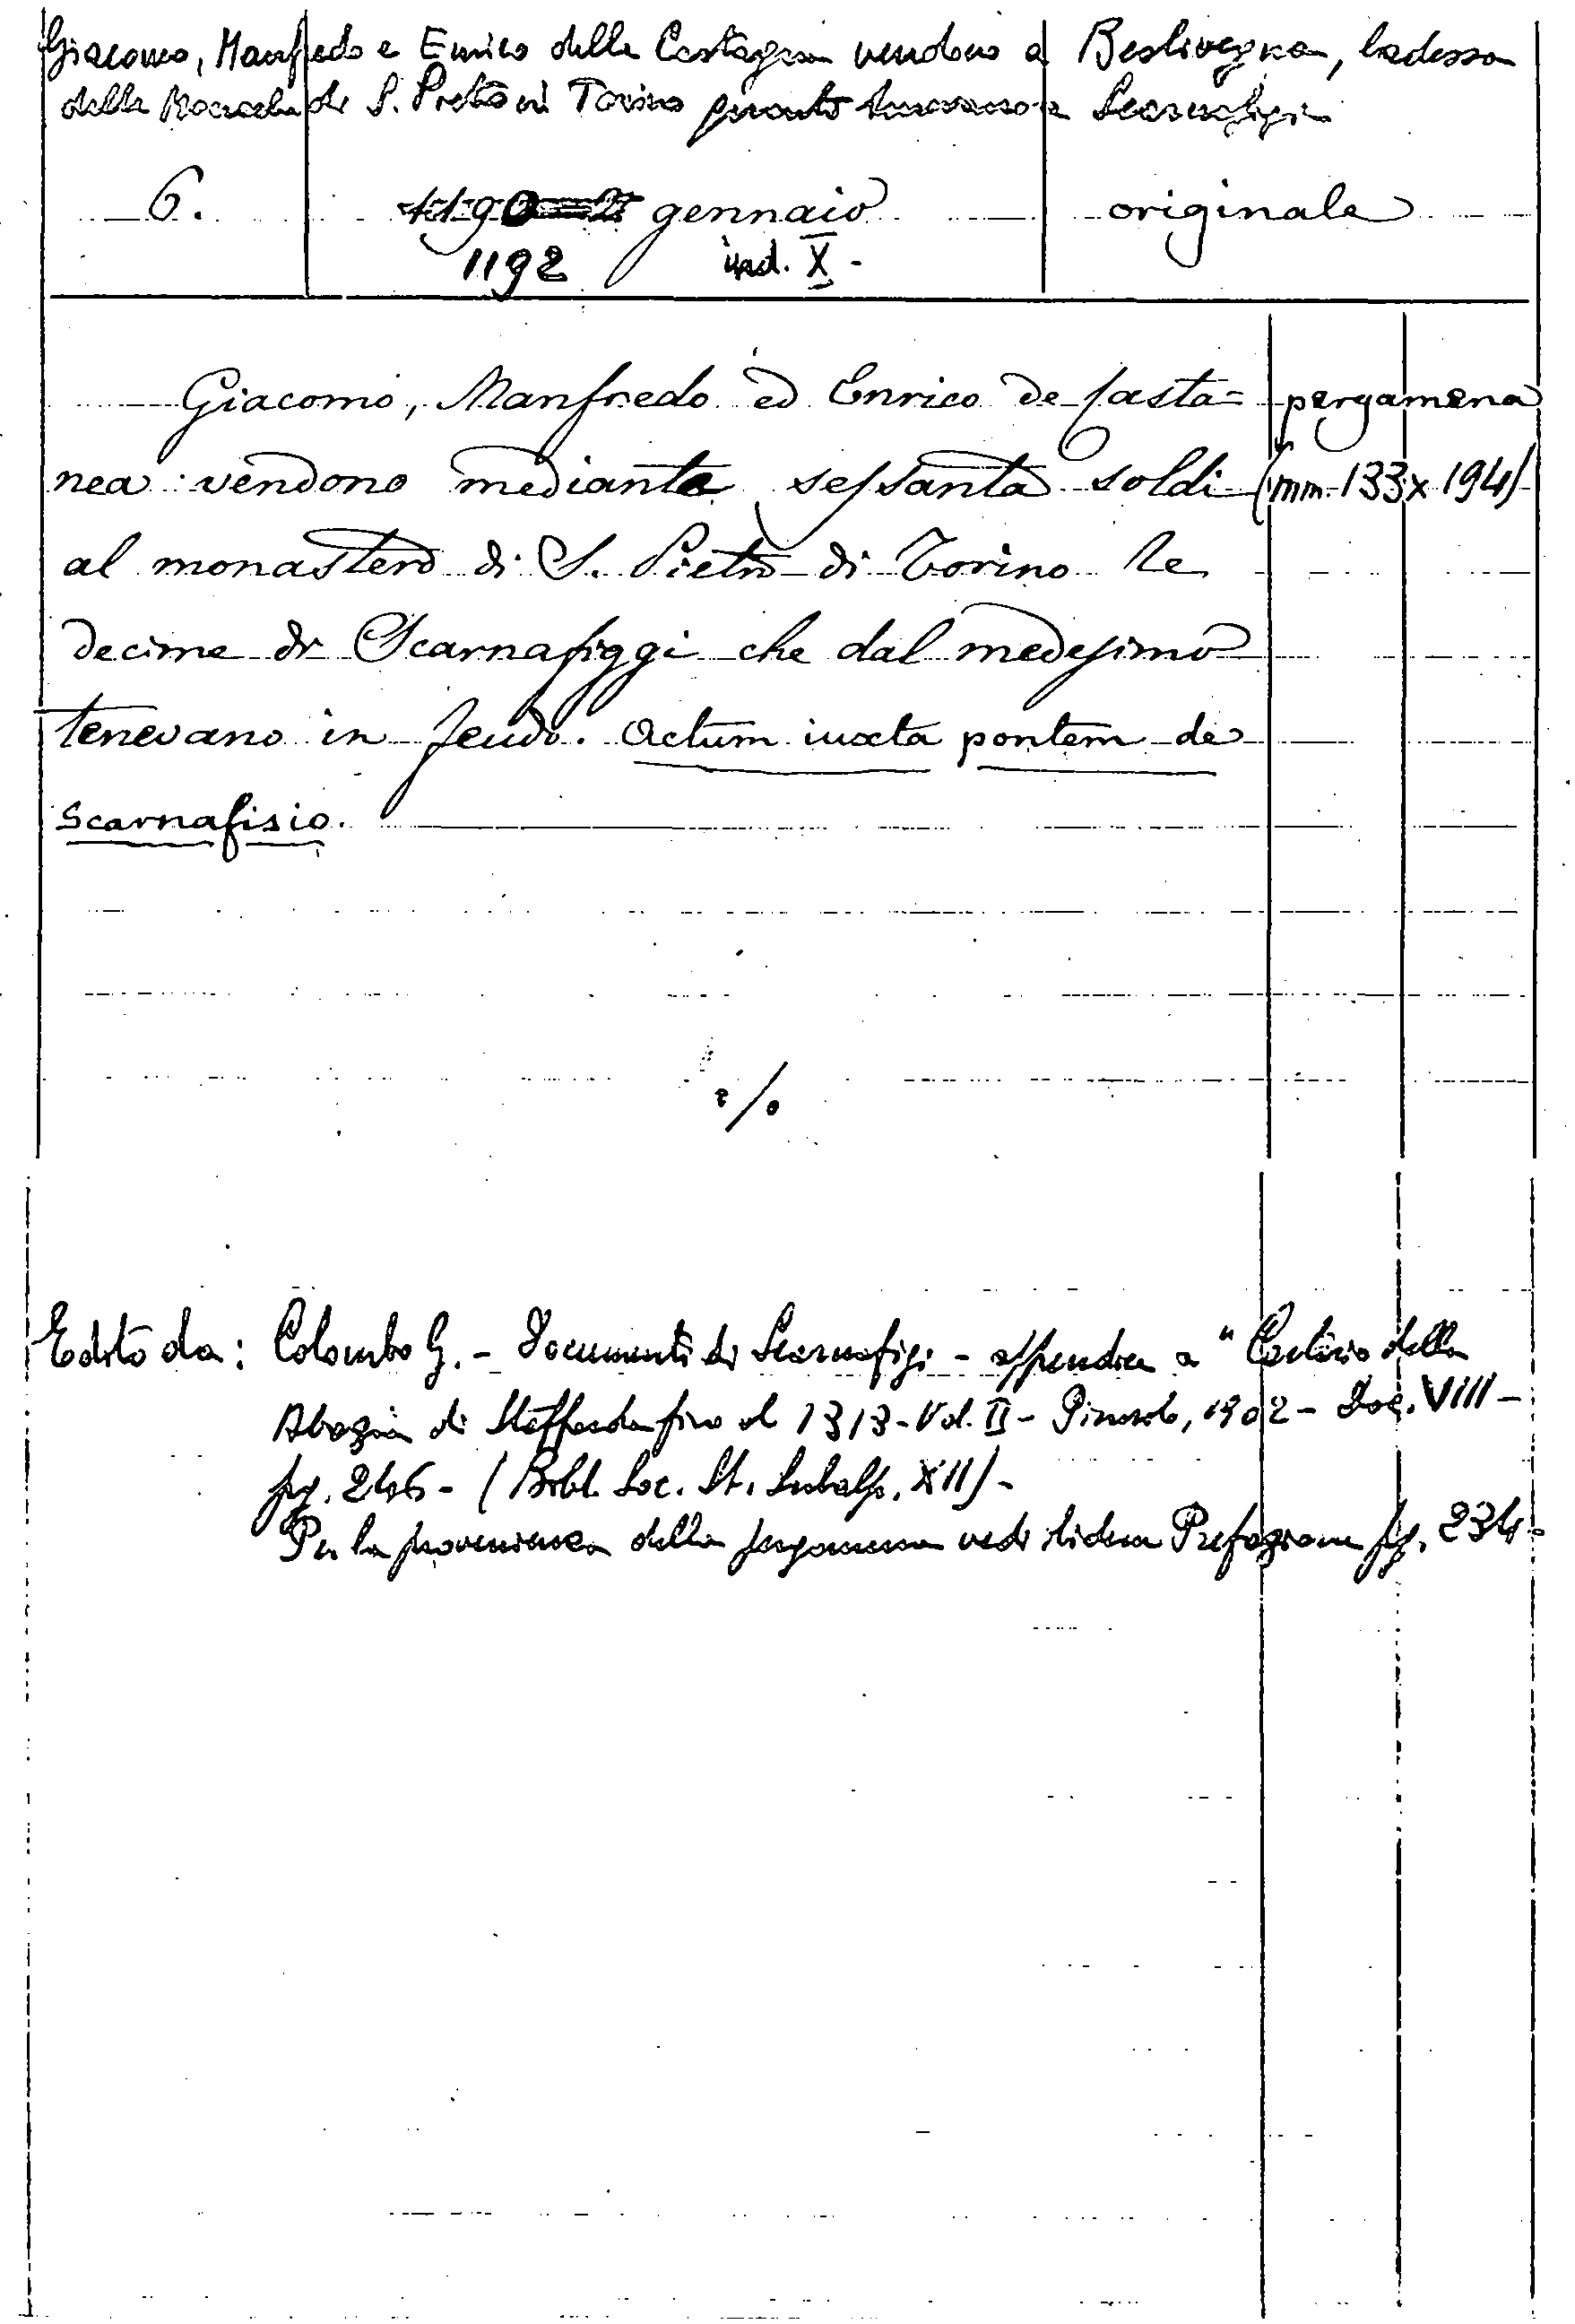 Giacomo, Manfredo e Enrico della Castagna vendono a Beslivegna, badessa
della Monache di S. Pietro in Torino quanto tenevano a Scarnafigi
6. 1190=2 gennaio originale
1192 ind. X -
Giacomo, Manfredo ed Enrico de Casta= pergamena
nea vendono mediante sessanta soldi (mm. 133x194)
al monastero di S. Pietro di Torino le
decime di Scarnafiggi che dal medesimo
tenevano in feudo. Actum iuxta pontem de
Scarnafisio.
./.
Edito da: Colombo G. - Documenti di Scarnafigi - appendice a "Cartario della
Abazia di Staffarda fino al 1313 - Vol. II - Pinerolo, 1902 - Doc. VIII -
pg. 246 - (Bibl. Soc. St. Subalp. XII) -
Per la provenienza della pergamena vedi ibidem Prefazione pg. 234 -